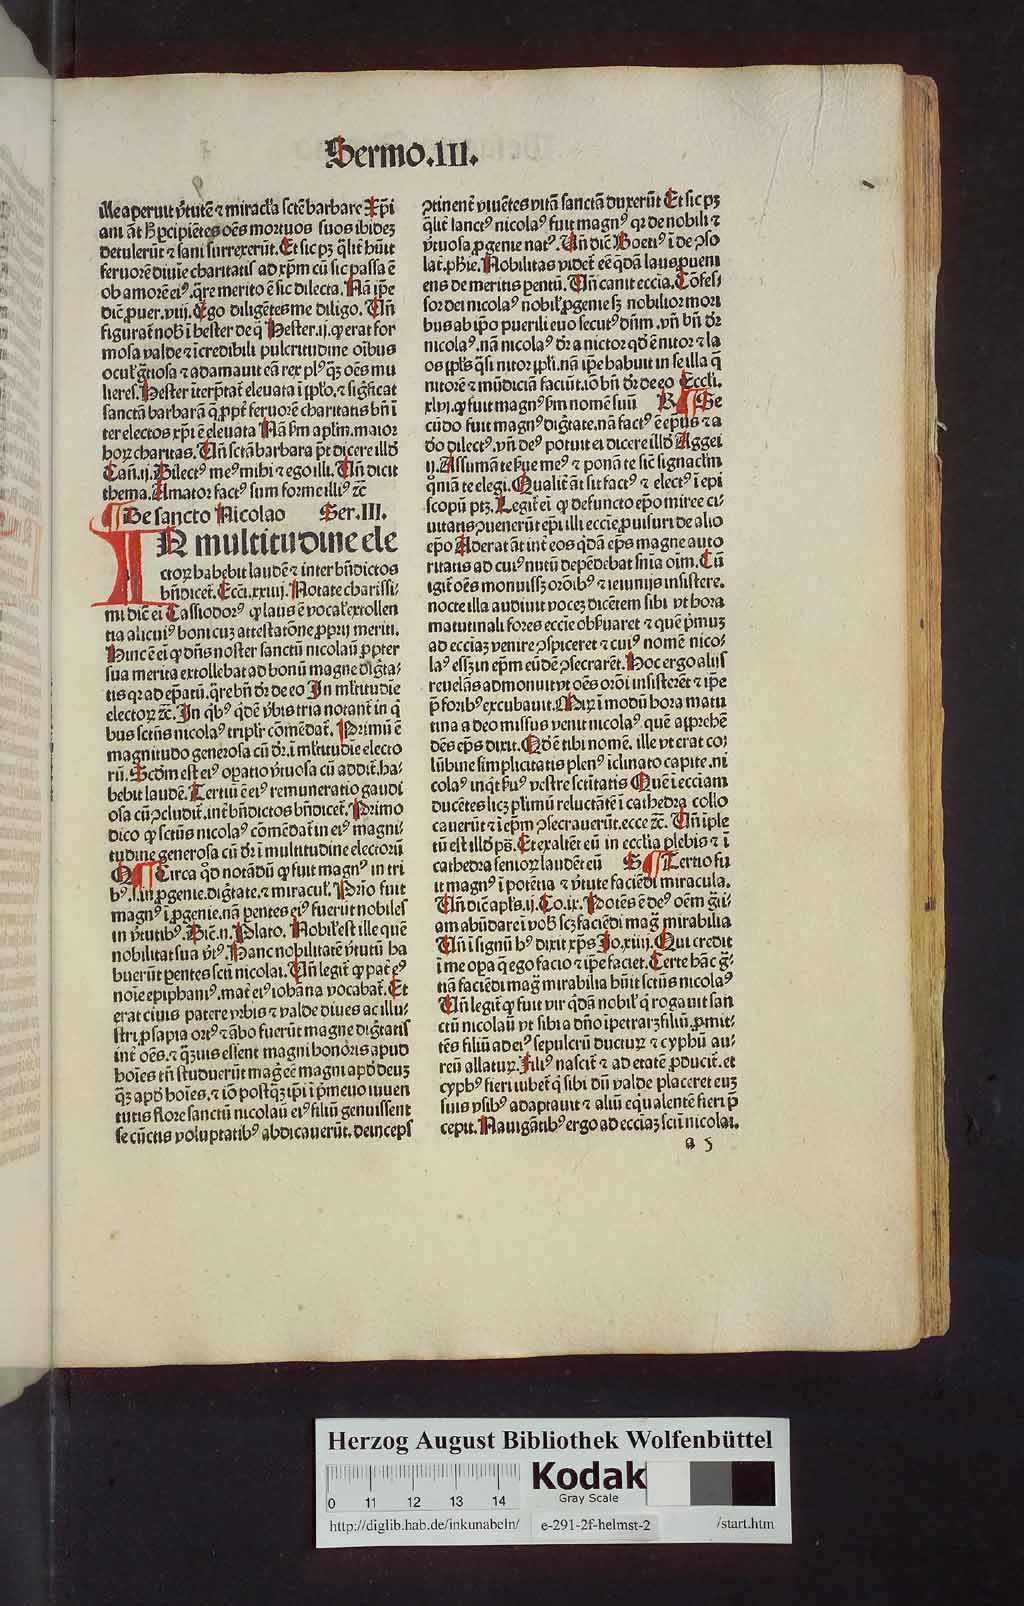 Sermo.III.
ille aperuit v̄tutē ⁊ miracl'a sctē barbare Xp̄i
ani āt h̄ p̄cipiētes oēs mortuos suos ibideꝫ
detulerūt ⁊ sani surrexerūt. Et sic pꝫ q̄lit' hūit
feruorē diuīe charitatis ad xp̄m cū sic passa ē
ob amorē eiꝰ. q̄re merito ē sic dilecta. Nā ip̄e
dic̄ ꝓuer. viij. Ego diligētes me diligo. Un̄
figurat̄ nob̄ ī hester de q̄ Hester. ij. ꝙ erat for
mosa valde ⁊ īcredibili pulcritudine oībus
ocul' g̃tiosa ⁊ adamauit eā rex plꝰ qꝫ oēs mu
lieres. Hester īterp̄tat̄ eleuata ī sp̄lo. ⁊ sig̃ficat
sanctā barbarā q̄ ꝓpt̄ feruorē charitatis bn̄ ī
ter electos xp̄i ē eleuata Nā km̄ apl'm. maior
hoꝝ charitas. Un̄ sctā barbara p̄t dicere illd̄
Can̄. ij. Dilectꝰ meꝰ mihi ⁊ ego illi. Un̄ dicit
thema. Amator factꝰ sum forme illiꝰ ⁊c̄
¶ De sancto Nicolao Ser. III.
IN multitudine ele
ctoꝝ habebit laudē ⁊ inter bn̄dictos
bn̄dicet̄. Ecc̄i. xxiiij. Notate charissi⸗
mi dic̄ ei Cassiodorꝰ ꝙ laus ē vocal' extollen
tia alicuiꝰ boni cuꝫ attestatōne ꝓprij meriti.
Hinc ē ei ꝙ dn̄s noster sanctū nicolaū ꝓpter
sua merita extollebat ad bonū magne dig̃ta⸗
tis qꝛ ad ep̄atū. q̄re bn̄ dr̄ de eo In ml'titudīe
electoꝝ ⁊c̄. In qb̄ꝰ q̄dē v̄bis tria notant̄ in q̄
bus sctūs nicolaꝰ tripl'r cōmēdat̄. Primū ē
magnitudo generosa cū dr̄. ī ml'titudīe electo
rū. Scd̄m est eiꝰ oꝑatio v̄tuosa cū addit̄. ha⸗
bebit laudē. Tertiū ē eiꝰ remuneratio gaudi
osa cū ↄcludit̄. int̄ bn̄dictos bn̄dicet̄. Primo
dico ꝙ sctūs nicolaꝰ cōmēdat̄ in eiꝰ magni⸗
tudine generosa cū dr̄ ī multitudine electorū
Q ¶ Circa qd̄ notādū ꝙ fuit magnꝰ in tri
bꝰ. s. in ꝓgenie. dig̃tate. ⁊ miracul'. Prīo fuit
magnꝰ ī ꝓgenie. nā ꝑentes eiꝰ fuerūt nobiles
in v̄tutibꝰ. Dic̄. n. Plato. Nobil' est ille quē
nobilitat sua v̄tꝰ. Hanc nobilitatē v̄tutū ha
buerūt ꝑentes scti nicolai. Un̄ legit̄ ꝙ pat̄ eꝰ
noīe epiphaniꝰ. mat̄ eiꝰ iohāna vocabat̄. Et
erat ciuis patere vrbis ⁊ valde diues ac illu⸗
stri ꝓsapia ortꝰ ⁊ ābo fuerūt magne dig̃tatis
int̄ oēs. ⁊ q̄ꝫuis essent magni honoris apud
hoīes tn̄ studuerūt mag̃ eē magni apd̄ deuꝫ
q̄ꝫ apd̄ hoīes. ⁊ iō postq̄ꝫ ip̄i ī p̄meuo iuuen
tutis flore sanctū nicolaū eiꝰ filiū genuissent
se cūctis voluptatibꝰ abdicauerūt. deinceps
ↄtinent̄ viuētes vitā sanctā duxerūt Et sic pꝫ
q̄lit̄ sanctꝰ nicolaꝰ fuit magnꝰ qꝛ de nobili ⁊
v̄tuosa ꝓgenie natꝰ. Un̄ dic̄ Boetiꝰ ī de ↄso
lat̄. ph̄ie. Nobilitas videt̄ eē q̄dā laus ꝓueni
ens de meritis ꝑentū. Un̄ canit eccīa. Cōfes⸗
sor dei nicolaꝰ nobil' ꝓgenie sꝫ nobilior mori
bus ab ip̄o puerili euo secutꝰ dn̄m. vn̄ bn̄ dr̄
nicolaꝰ. nā nicolaꝰ dr̄ a nictor qd̄ ē nitor ⁊ la
os ppl's q̄si nitor ppl'i. nā ip̄e habuit in se illa q̄
nitorē ⁊ mūdiciā faciūt. iō bn̄ dr̄ de eo Eccl'i.
xlvi. ꝙ fuit magnꝰ km̄ nomē suū R ¶ Se
cūdo fuit magnꝰ dig̃tate. nā factꝰ ē ep̄us ⁊ a
d̄o dilectꝰ. vn̄ deꝰ potuit ei dicere illd̄ Aggei
ij. Assumā te ẜue meꝰ ⁊ ponā te sic̄ signacl'm
qm̄ā te elegi. Qualit̄ āt sit factꝰ ⁊ electꝰ ī epi
scopū ptꝫ. Legit̄ ei ꝙ defuncto ep̄o miree ci⸗
uitatis ↄuenerūt ep̄i illi eccīe ꝓuisuri de alio
ep̄o Aderat āt int̄ eos q̄dā ep̄s magne aucto
ritatis ad cuiꝰ nutū depēdebat snīa oīm. Cū
igit̄ oēs monuissꝫ orōibꝰ ⁊ ieiunijs insistere.
nocte illa audiuit vocez dicētem sibi vt hora
matutinali fores eccīe obẜuaret ⁊ que p̄muꝫ
ad ecciaꝫ venire ↄspiceret ⁊ cuiꝰ nomē nico⸗
laꝰ essꝫ in ep̄m eūdē ↄsecraret̄. Hoc ergo alijs
reuelās admonuit vt oēs orōi insisterēt ⁊ ip̄e
p̄ foribꝰ excubauit. Miꝝ ī modū hora matu
tina a deo missus venit nicolaꝰ. quē apꝓhē
dēs ep̄s dixit. Qd̄ ē tibi nomē. ille vt erat coꝫ
lūbine simplicitatis plenꝰ īclinato capite. ni
colaꝰ inqt ẜuꝰ vestre sctitatis Quē ī ecciam
ducētes licꝫ pl'imū reluctātē ī cathedra collo
cauerūt ⁊ ī ep̄m ↄsecrauerūt. ecce ⁊c̄. Un̄ īple
tū est illd̄ ps̄. Et exaltēt eū in ecclīa plebis ⁊ ī
cathedra senioꝝ laudēt eū S ¶ Tertio fu
it magnꝰ ī potētia ⁊ v̄tute faciēdi miracula.
Un̄ dic̄ apl's. ij. Co. ix. Potēs ē deꝰ oēm g̃ti⸗
am abūdare ī vob̄ scꝫ faciēdi mag̃ mirabilia
Un̄ ī signū hꝰ dixit xp̄s Io. xiiij. Qui credit
ī me oꝑa q̄ ego facio ⁊ ip̄e faciet. Certe hāc g̃⸗
tiā faciēdi mag̃ mirabilia hūit sctūs nicolaꝰ
Un̄ legit̄ ꝙ fuit vir q̄dā nobil' q̄ rogauit san
ctū nicolaū vt sibi a dn̄o īpetraꝫ filiū. ꝓmit⸗
tēs filiū ad eiꝰ sepulcrū ductuꝝ ⁊ cyphū au⸗
reū allatuꝝ. Filiꝰ nascit̄ ⁊ ad etatē ꝓducit̄. et
cyphꝰ fieri iubet̄ q̄ sibi dū valde placeret euꝫ
suis vsibꝰ adaptauit ⁊ aliū eq̄ualentē fieri p̄
cepit. Nauigātibꝰ ergo ad ecciaꝫ scti nicolai.
a 5
Herzog August Bibliothek Wolfenbüttel
0 11 12 13 14
Kodak
Gray Scale
http://diglib.hab.de/inkunabeln/ e-291-2f-helmst-2 /start.htm